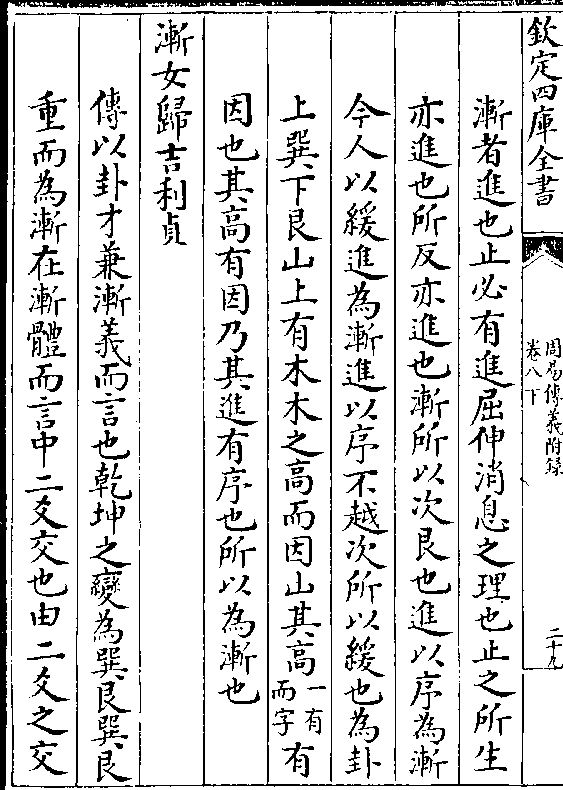 欽定四庫全書
周易傳義附録
卷八下
二十九
漸者進也止必有進屈伸消息之理也止之所生
亦進也所反亦進也漸所以次艮也進以序為漸
今人以緩進為漸進以序不越次所以緩也為卦
上巽下艮山上有木木之高而因山其高一有而字有
因也其高有因乃其進有序也所以為漸也
漸女歸吉利貞
傳以卦才兼漸義而言也乾坤之變為巽艮巽艮
重而為漸在漸體而言中二爻交也由二爻之交